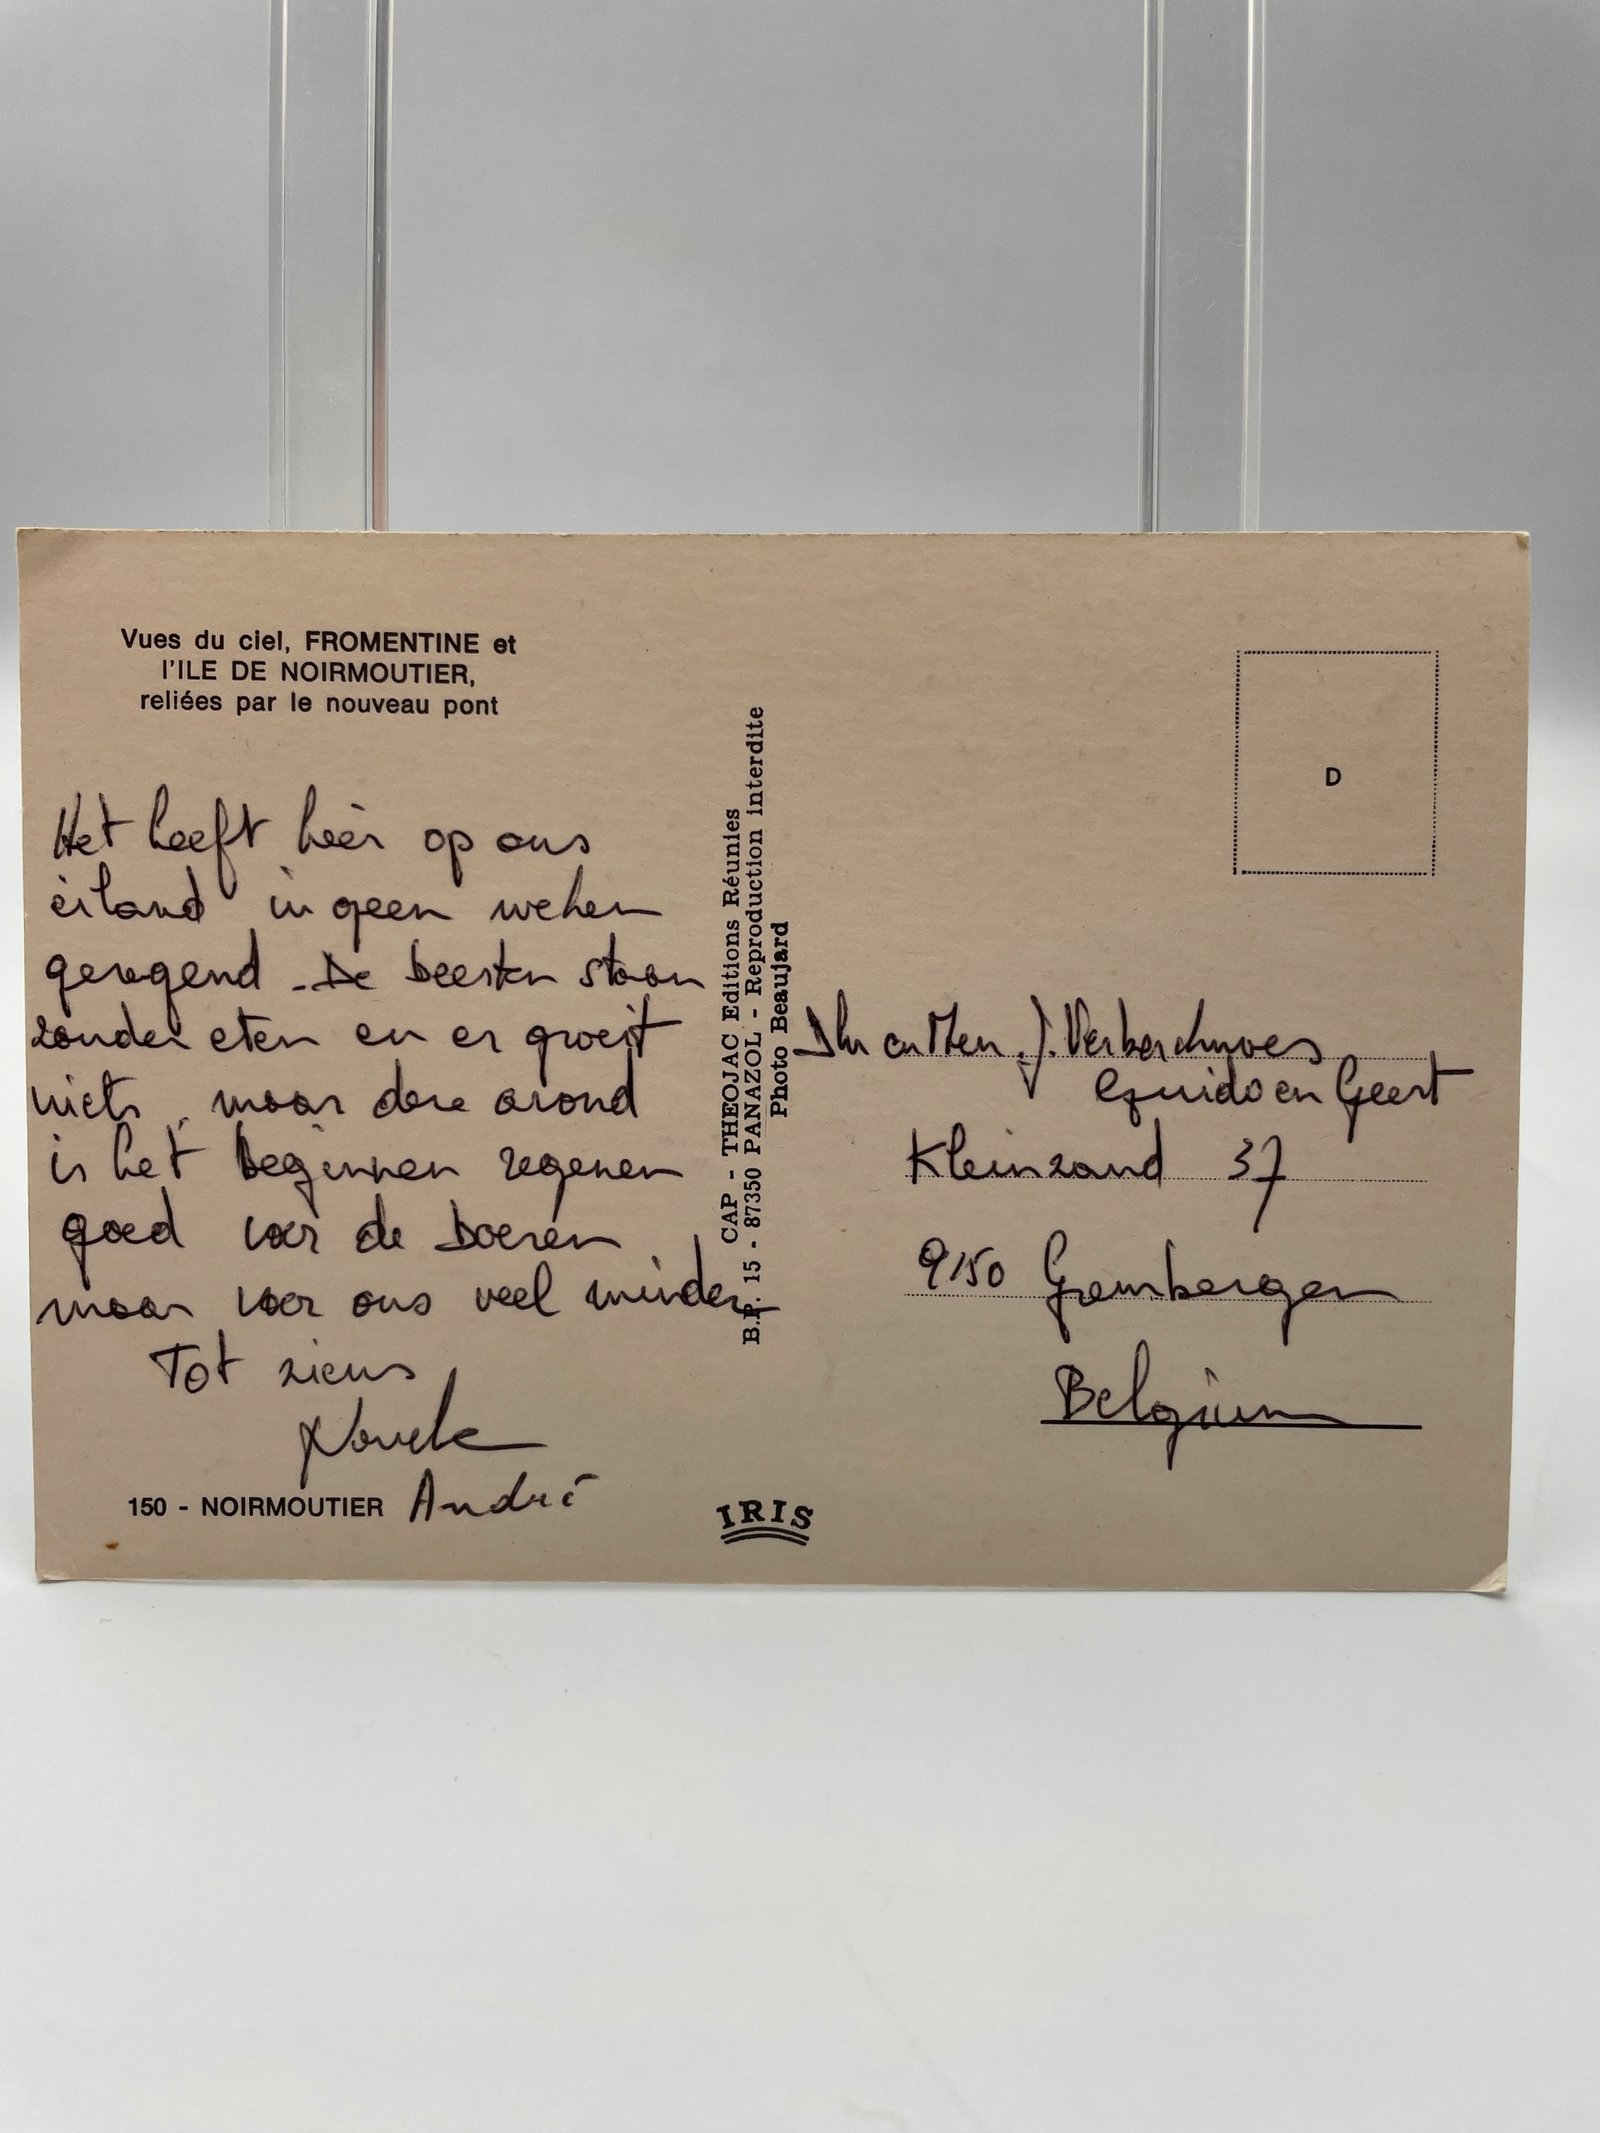 Vues du ciel, FROMENTINE et
l'ILE DE NOIRMOUTIER,
reliées par le nouveau pont
Het heeft hier op ons
eiland in geen weken
geregend. De beesten staan
zonder eten en er groeit
niets, maar deze avond
is het beginnen regenen
goed voor de boeren
maar voor ons veel minder
Tot ziens
André
150 - NOIRMOUTIER
CAP - THEOJAC Editions Réunies
B.P. 15 - 87350 PANAZOL - Reproduction interdite
Photo Beaujard
IRIS
D
Dhr en Mevr. J.
Guido en Geert
Kleinzand 37
9150 Grembergen
Belgium